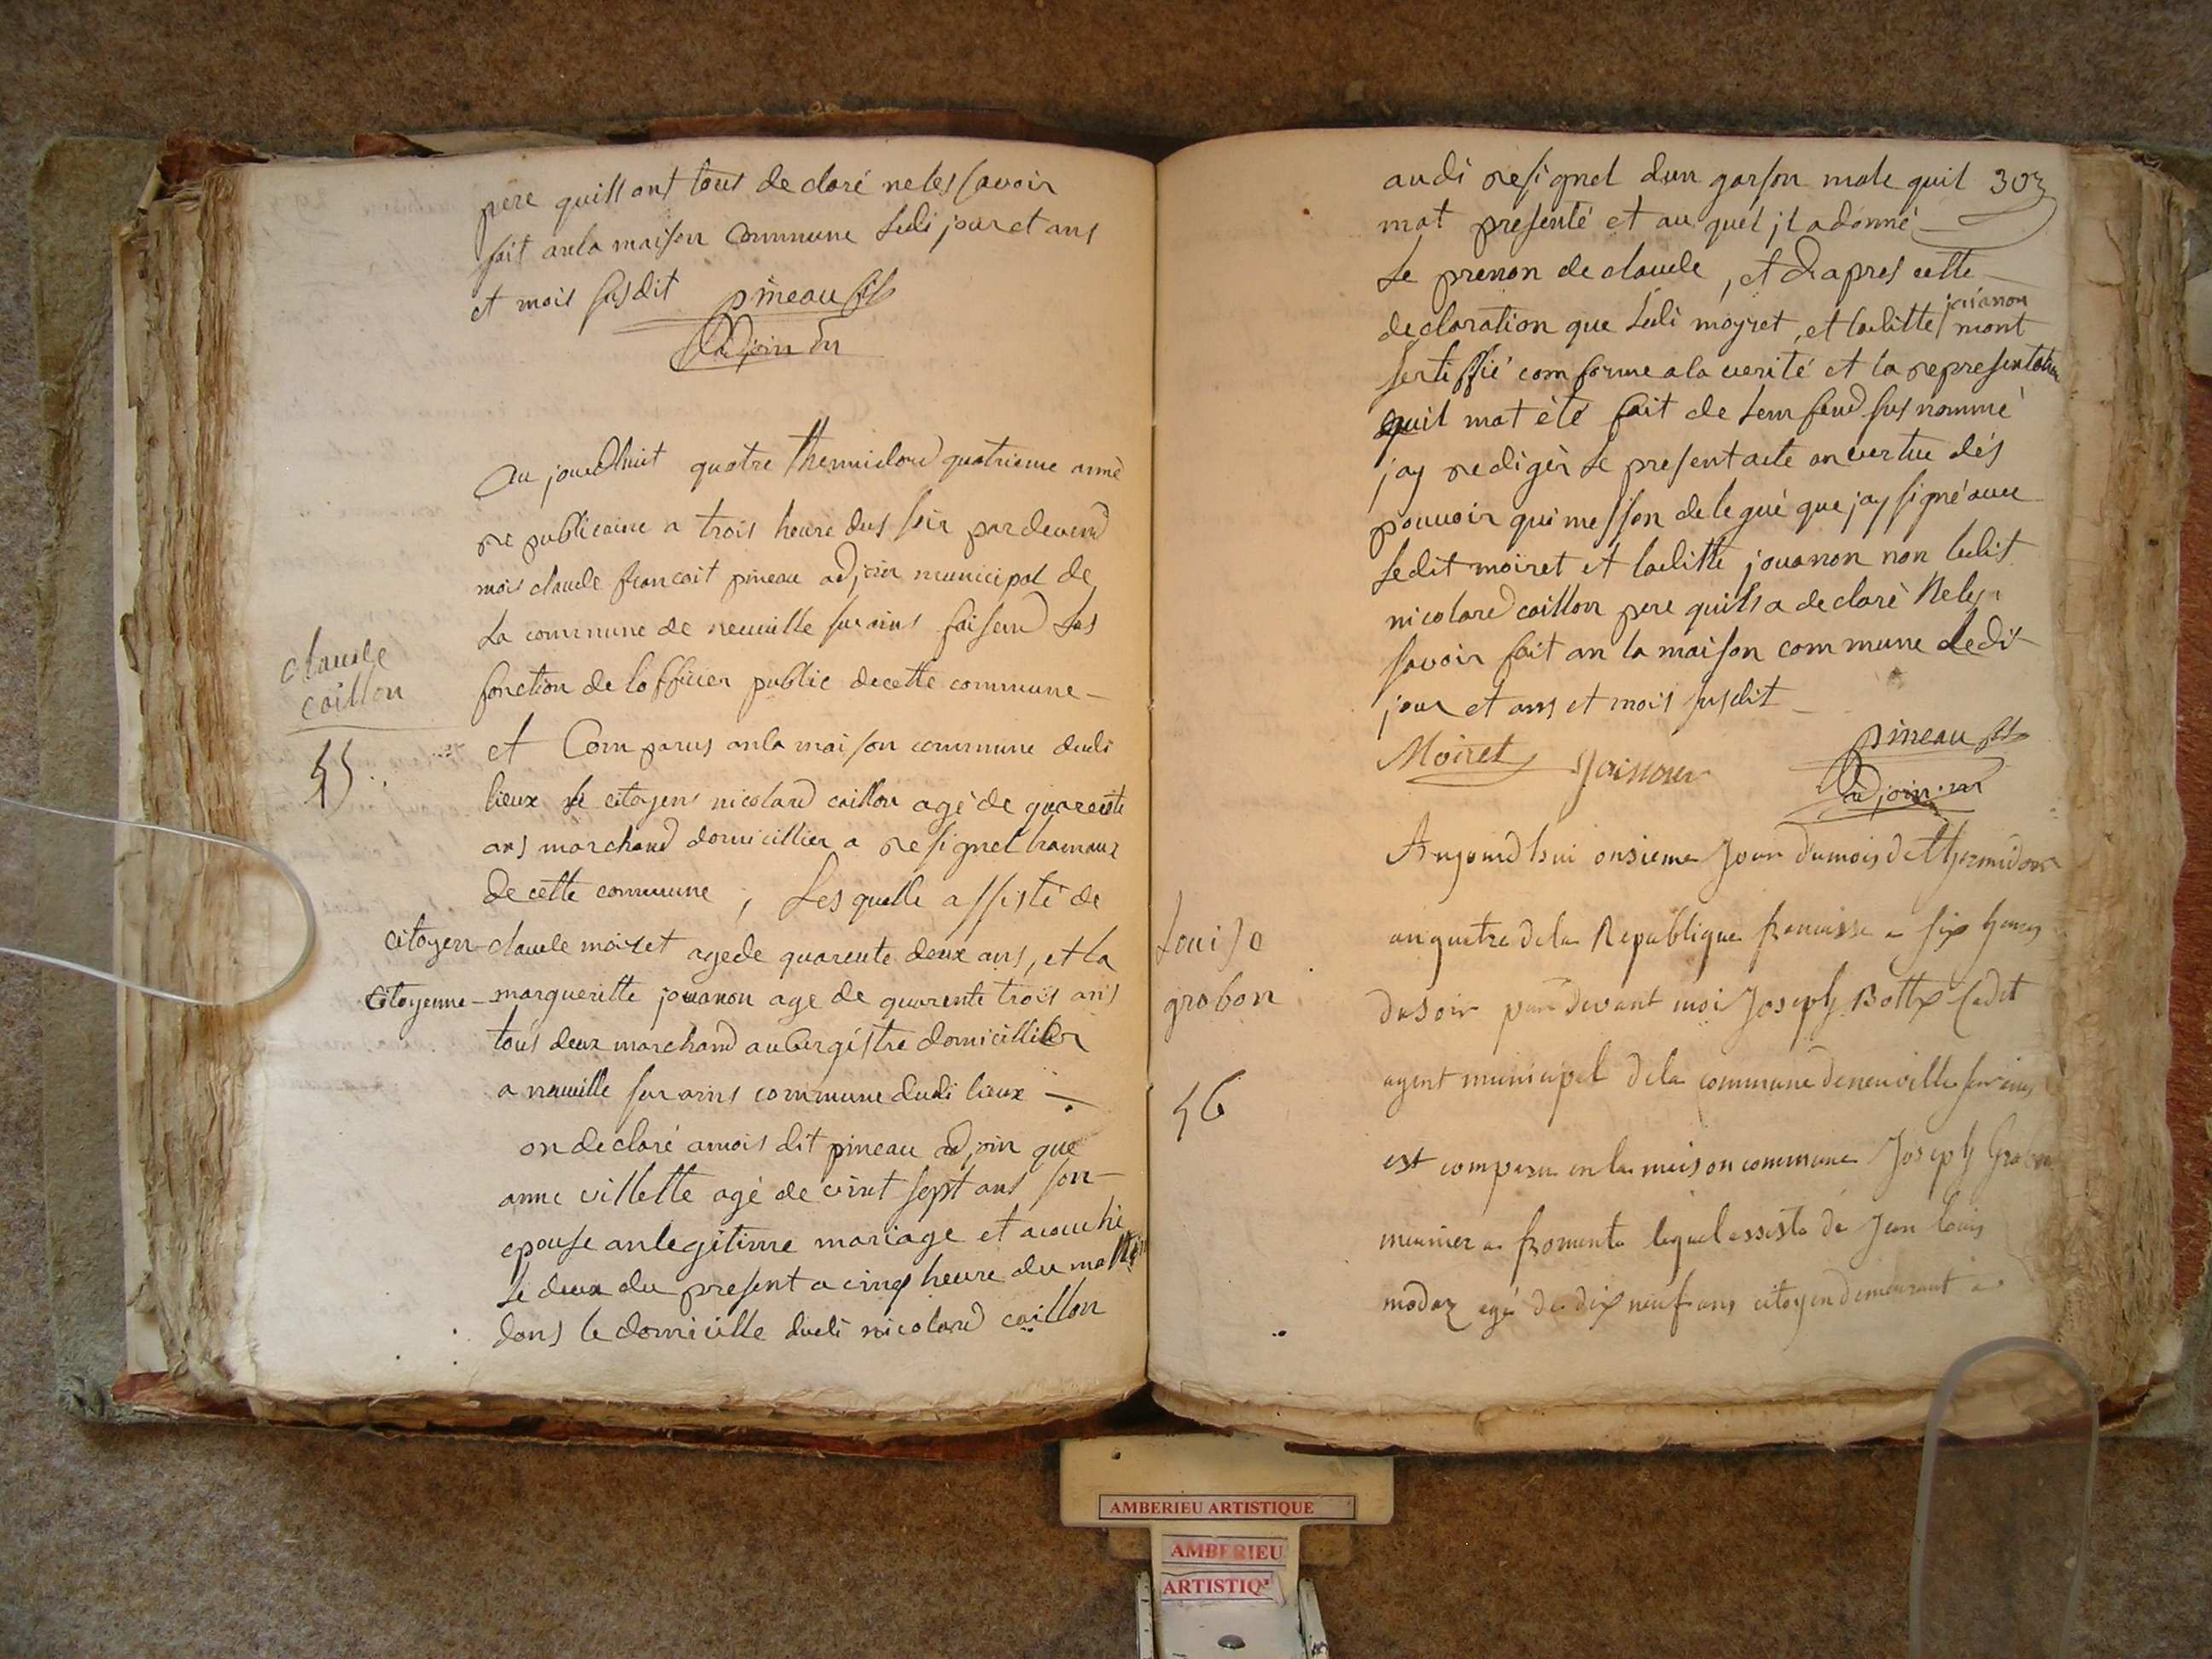 pere quils ont tous declaré neles savoir
fait anla maison Commune ledi jour et ans
et mois susdit pineau fils
adjoin
Au jourdhuit quatre thermidord quatrieme anné
republicaine a trois heure dus soir pardevend
mois claude francoit pineau adjoin municipal de
La commune de neuville sur ains faisend las
fonction de lofficier public decette commune
claude
caillon
55
et Comparus anla maison commune dudi
lieux le citoyens nicolard caillon agé de quarente
ans marchand domicillier a resignel hamaux
de cette commune, Lesquelle assisté de
citoyen claude moiret agede quarente deux ans, et la
Citoyenne margueritte jouanon age de quarente trois ans
tous deux marchand aubergistre domicillier
a neuville sur ains commune dudi lieux
on declaré amois dit pineau adjoin que
anne villette agé de vint sept ans son
epouse anlegitime mariage et acouché
le deux du present a cinq heure du mattin
dans le domicille dudi nicolard caillon
audi resignel dun garson male quil 303
mat presenté et au quel jl adonné
Le prenon de claude, et dapres cette
declaration que ledi moyret, et laditte jouanon mont
sertiffié com forme ala verité et la representation
quil mat èté fait de lemfend sus nommé
jay redigèr le present acte anvertue dés
pouvoir qui messon delegué que jay signé avec
ledit moiret et laditte jouanon non ledit
nicolard caillon pere quils a declaré Neles
savoir fait an la maison commune ledit
jour et ans et mois susdit
Moiret Joanon pineau fils
adjoin
Aujourdhui onsieme Jour dumois de thermidor
louise
grobon
56
anquatre dela Republique francaisse a six heures
dusoir par devant moi Joseph Bottex Cadet
agent municipal dela commune deneuville sur ains
est comparu enla maison commune Joseph Grobon
meunier a fromente lequel assiste de Jean louis
modaz agé de dix neuf ans citoyen demeurant a
AMBERIEU ARTISTIQUE
AMBERIEU
ARTISTIQ